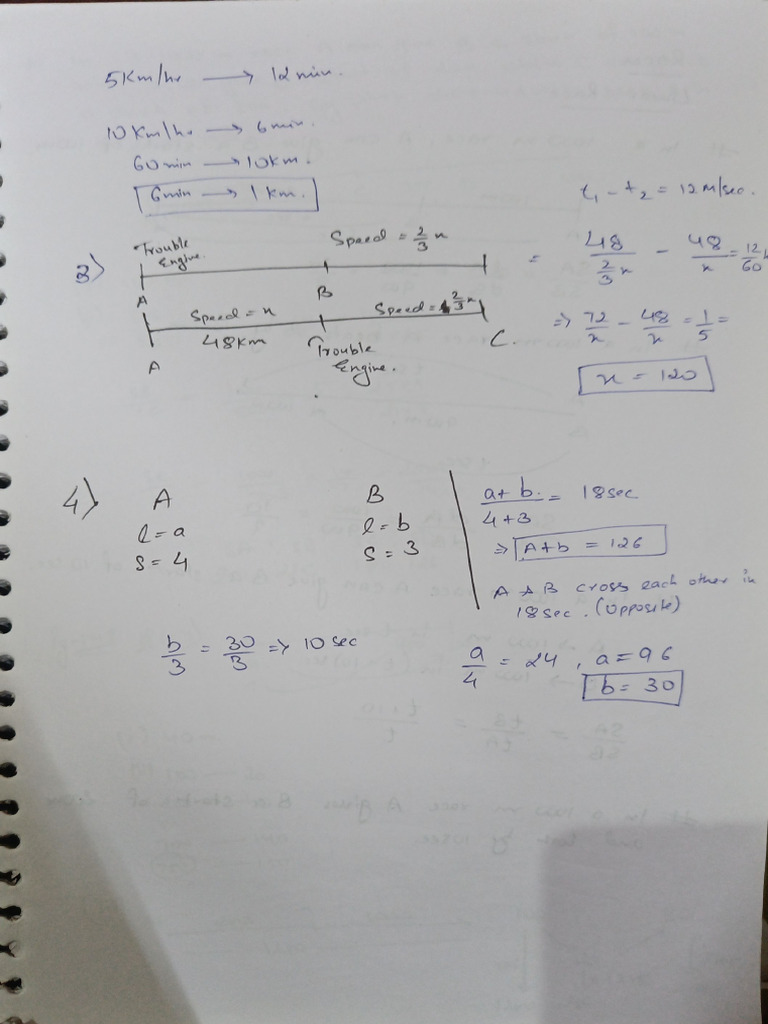 5Km/hr → 12 min.
10 Km/hr → 6 min.
60 min → 10 km.
6 min → 1 km.
t₁ - t₂ = 12 M/sec.
3) Trouble Engine. Speed = 2/3 x
A B
Speed = x Speed = 2/3 x
A 48 KM Trouble Engine. C.
= 48/(2/3 x) - 48/x = 12/60
⇒ 72/x - 48/x = 1/5 =
x = 120
4) A B
l = a l = b
S = 4 S = 3
a + b./4+3 = 18 sec
⇒ A+b = 126
A & B cross each other in
18 sec. (Opposite)
b/3 = 30/3 ⇒ 10 sec
a/4 = 24 , a = 96
b = 30